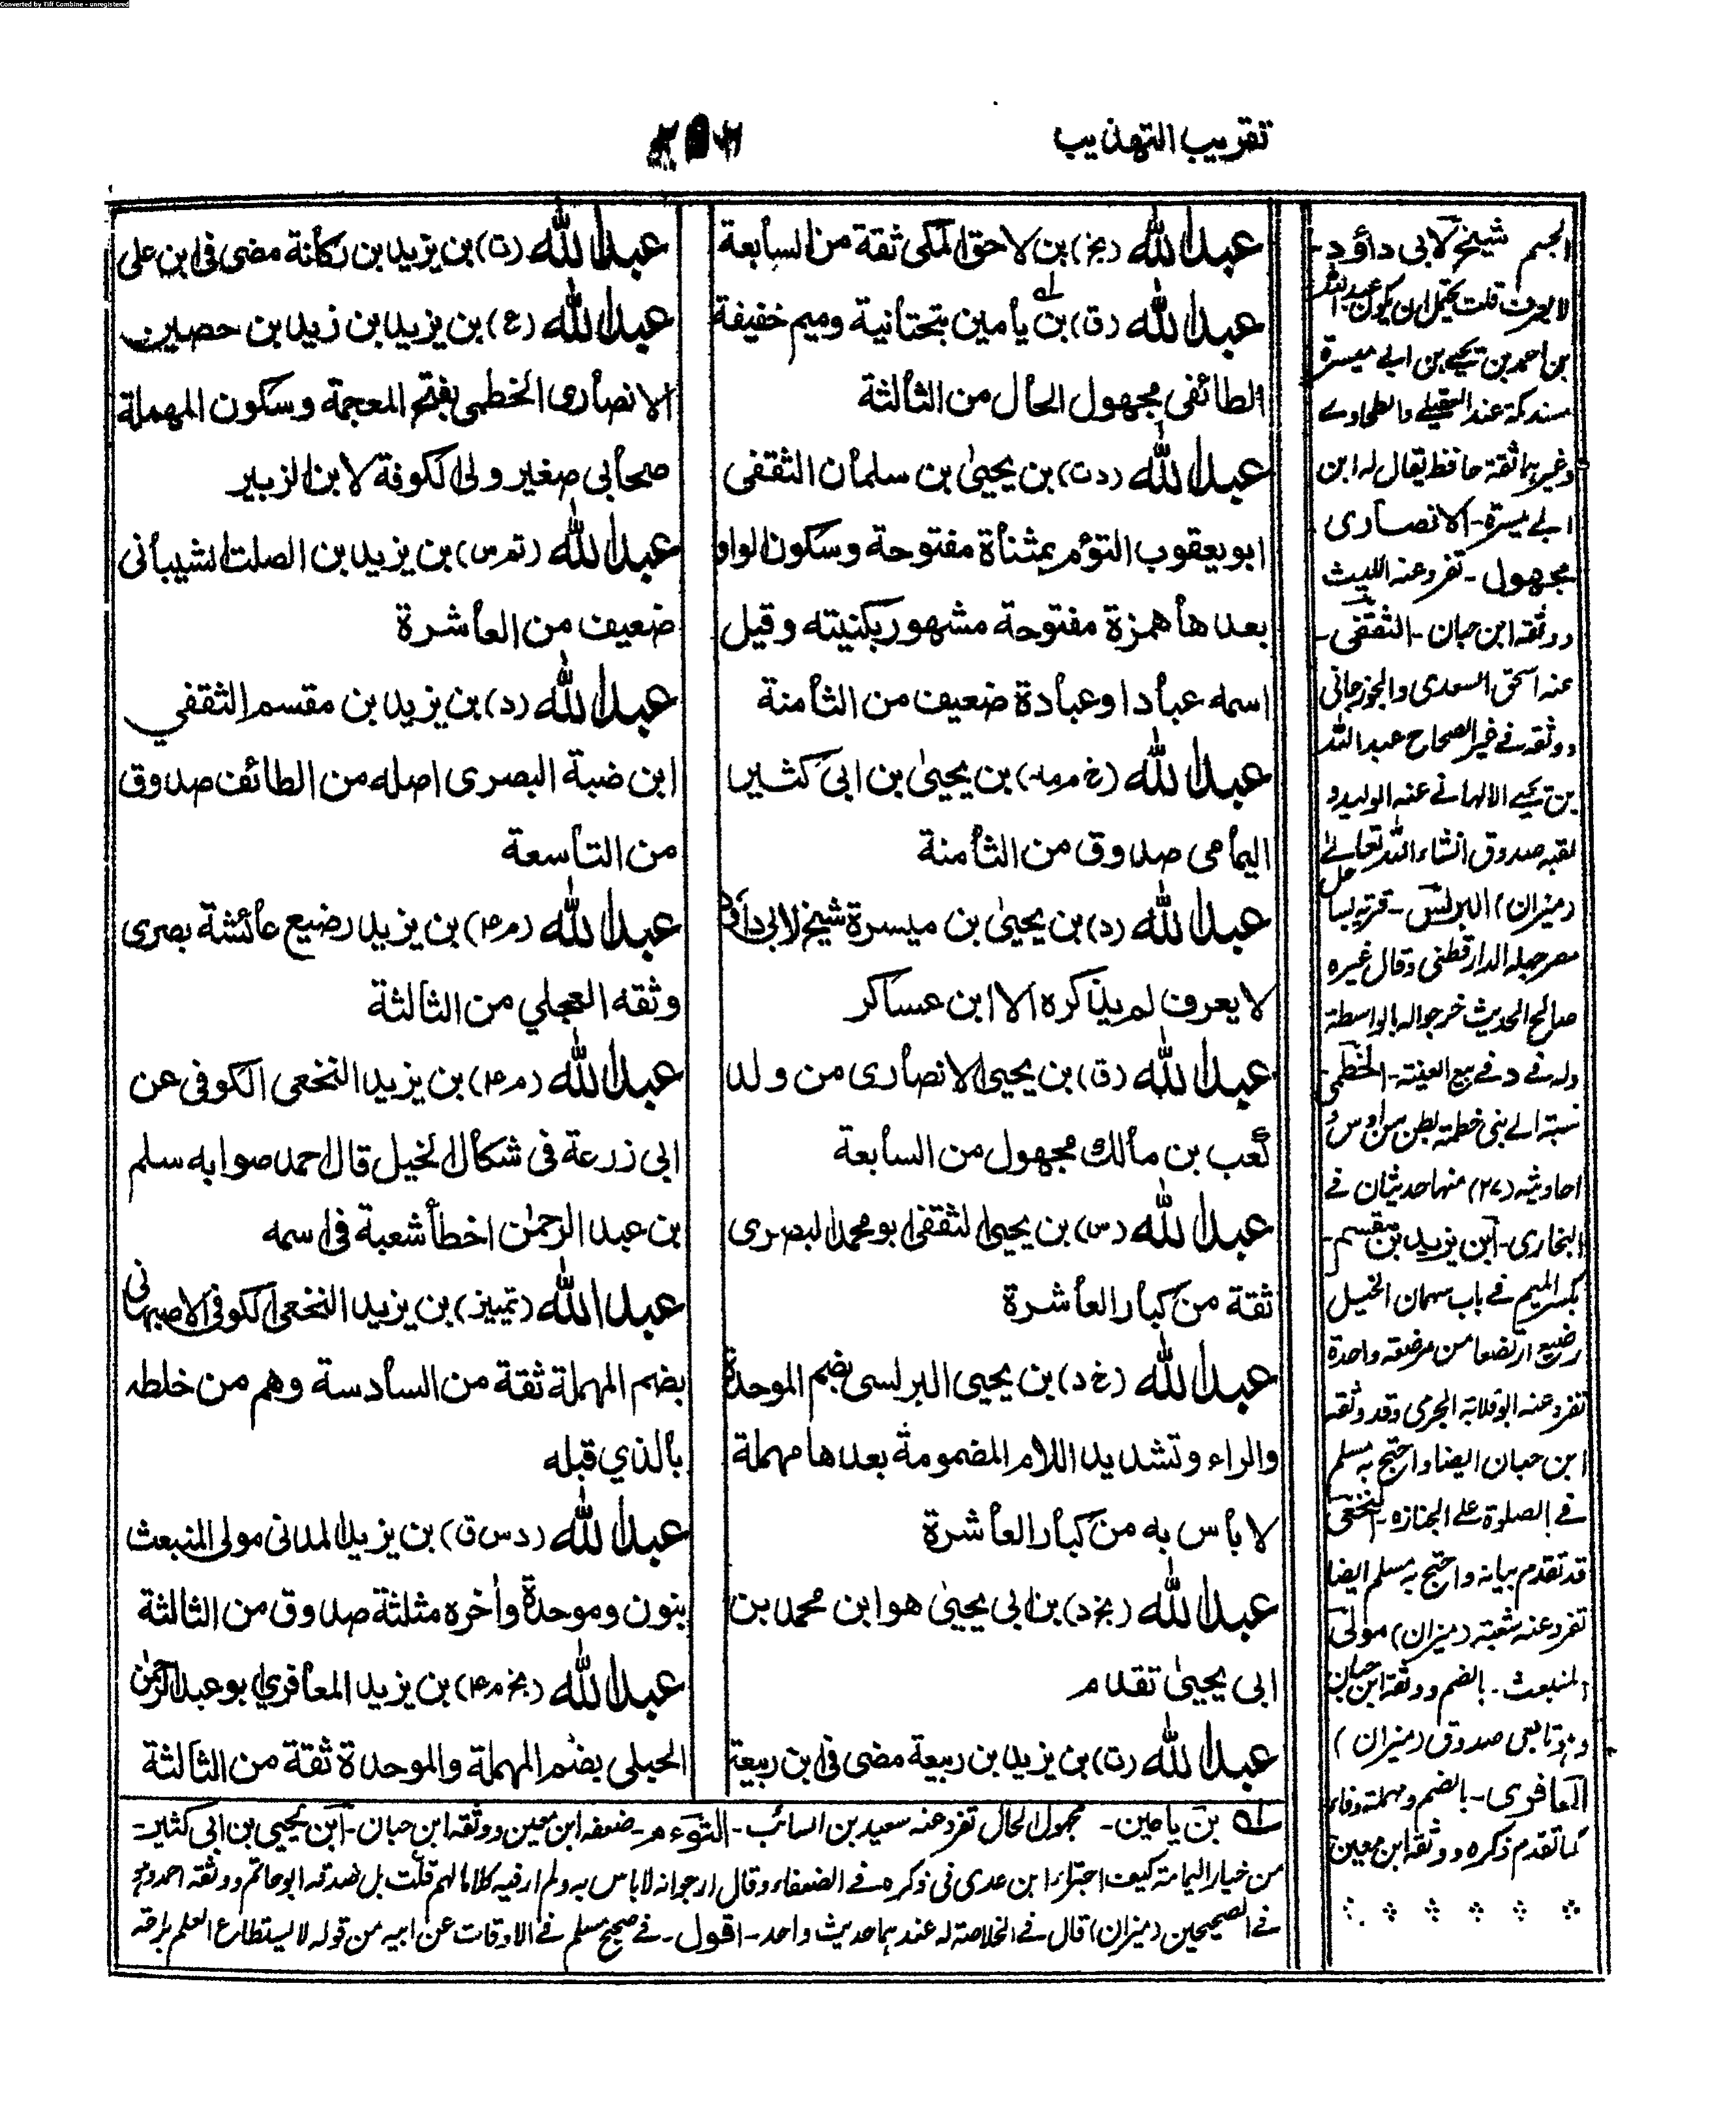 Converted by Tiff Combine - unregistered
تقريب التهذيب
عبد الله (بخ) بن لاحق المكى ثقة من السابعة
عبد الله (ق) بن يامين بتحتانية وميم خفيفة
الطائفى مجهول الحال من الثالثة
عبد الله (د ت) بن يحيىٰ بن سلمان الثقفى
ابو يعقوب التوؤم بمثناة مفتوحة وسكون الواو
بعدها همزة مفتوحة مشهور بكنيته وقيل
اسمه عباد او عبادة ضعيف من الثامنة
عبد الله (خ م مد) بن يحيىٰ بن ابى كثير
اليمامى صدوق من الثامنة
عبد الله (د) بن يحيىٰ بن ميسرة شيخ لابى داؤد
لا يعرف لم يذكره الا ابن عساكر
عبد الله (ق) بن يحيى الانصارى من ولد
كعب بن مالك مجهول من السابعة
عبد الله (س) بن يحيى الثقفى ابو محمد البصرى
ثقة من كبار العاشرة
عبد الله (خ د) بن يحيى البرلسى بضم الموحدة
والراء وتشديد اللام المضمومة بعدها مهملة
لا بأس به من كبار العاشرة
عبد الله (بخ د) بن ابى يحيىٰ هو ابن محمد بن
ابى يحيىٰ تقدم
عبد الله (ت) بن يزيد بن ربيعة مضى فى ابن ربيعة
عبد الله (ت) بن يزيد بن ركانة مضى فى ابن على
عبد الله (ع) بن يزيد بن زيد بن حصين
الانصارى الخطمى بفتح المعجمة وسكون المهملة
صحابى صغير ولى الكوفة لابن الزبير
عبد الله (تم س) بن يزيد بن الصلت الشيبانى
ضعيف من العاشرة
عبد الله (د) بن يزيد بن مقسم الثقفي
ابن ضبة البصرى اصله من الطائف صدوق
من التاسعة
عبد الله (م ٤) بن يزيد رضيع عائشة بصرى
وثقه العجلي من الثالثة
عبد الله (م ٤) بن يزيد النخعى الكوفى عن
ابى زرعة فى شكال الخيل قال احمد صوابه سلم
بن عبد الرحمٰن اخطأ شعبة فى اسمه
عبد الله (تمييز) بن يزيد النخعى الكوفى الاصبهانى
بضم المهملة ثقة من السادسة وهم من خلطه
بالذي قبله
عبد الله (د س ق) بن يزيد المدنى مولى المنبعث
بنون وموحدة وأخره مثلثة صدوق من الثالثة
عبد الله (بخ م ٤) بن يزيد المعافري ابو عبد الرحمٰن
الحبلى بضم المهملة والموحدة ثقة من الثالثة
الجيم شيخ لابى داؤد-
لا يعرف قلت يحتمل ان يكون عبد الله
بن احمد بن يحيے بن ابے ميسرة
مسند مكة عند العقيلے والطحاوے
وغيرهما ثقة حافظ يقال له ابن
ابے ميسرة- الانصارى
مجهول- تفرد عنه الليث
ووثقه ابن حبان- الثقفى-
عنه اسحٰق السعدى والجوزجانى
ووثقه فے غير الصحاح عبد الله
بن يحيے الالهانے عنه الوليد و
لقبه صدوق انشاء الله تعالےٰ
(ميزان) البرلس- قرية بساحل
مصر جهله الدارقطنى وقال غيره
صالح الحديث خرجوا له بالواسطة
وله فے د فے بيع العينة- الخطمى-
نسبة الے بنى خطمة بطن من اوس و
احاديثه (٢٧) منها حديثان فے
البخارى- ابن يزيد بن مقسم-
بكسر الميم فے باب سهمان الخيل
رضيع ارتضعا من مرضعة واحدة
تفرد عنه ابو قلابة الجرمى وقد وثقه
ابن حبان ايضا واحتج به مسلم
فے الصلوة على الجنازه- النخعى
قد تقدم بيانه واحتج به مسلم ايضا
تفرد عنه شعبة (ميزان) مولى
المنبعث- بالضم ووثقه ابن حبان
وهو تابعى صدوق (ميزان)
المعافرى- بالضم ومهملة وفاء
كما تقدم ذكره ووثقه ابن معين
لے بن يامين- مجهول الحال تفرد عنه سعيد بن السائب- التوءم- ضعفه ابن معين ووثقه ابن حبان- ابن يحيى بن ابى كثير-
من خيار اليمامة كيف اجترأ ابن عدى فى ذكره فے الضعفاء وقال ارجو انه لا باس به ولم ار فيه كلاما لهم قلت بل صدقه ابو حاتم ووثقه احمد وهو
فے الصحيحين (ميزان) قال فے الخلاصة له عندهما حديث واحد- اقول- فے صحيح مسلم فے الاوقات عن ابيه من قوله لا يستطاع العلم براحة